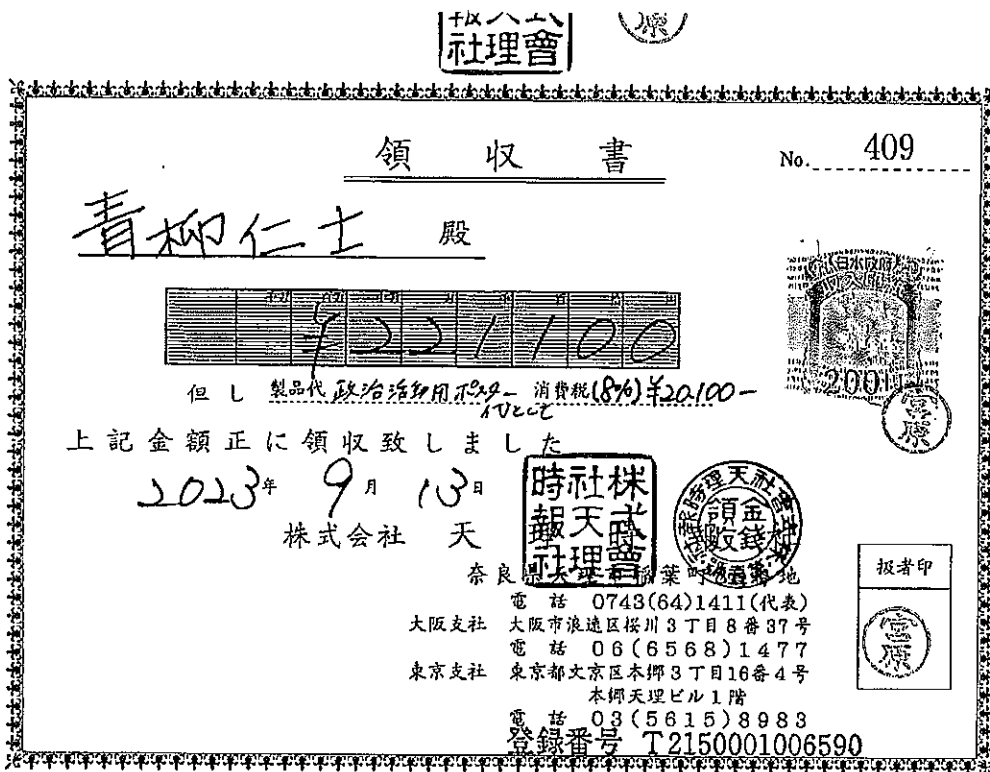 報天式
社理會
原
領収書
No. 409
青柳仁士 殿
¥221100
但し 製品代 政治活動用ポスター代として 消費税(8%)¥20,100-
日本政府
200円
宮原
上記金額正に領収致しました
2023年 9月 13日
株式会社 天理時報社
株式會社天理時報社
奈良県天理市稲葉町
電話 0743(64)1411(代表)
扱者印
大阪支社 大阪市浪速区桜川3丁目8番37号
電話 06(6568)1477
宮原
東京支社 東京都文京区本郷3丁目16番4号
本郷天理ビル1階
電話 03(5615)8983
登録番号 T2150001006590